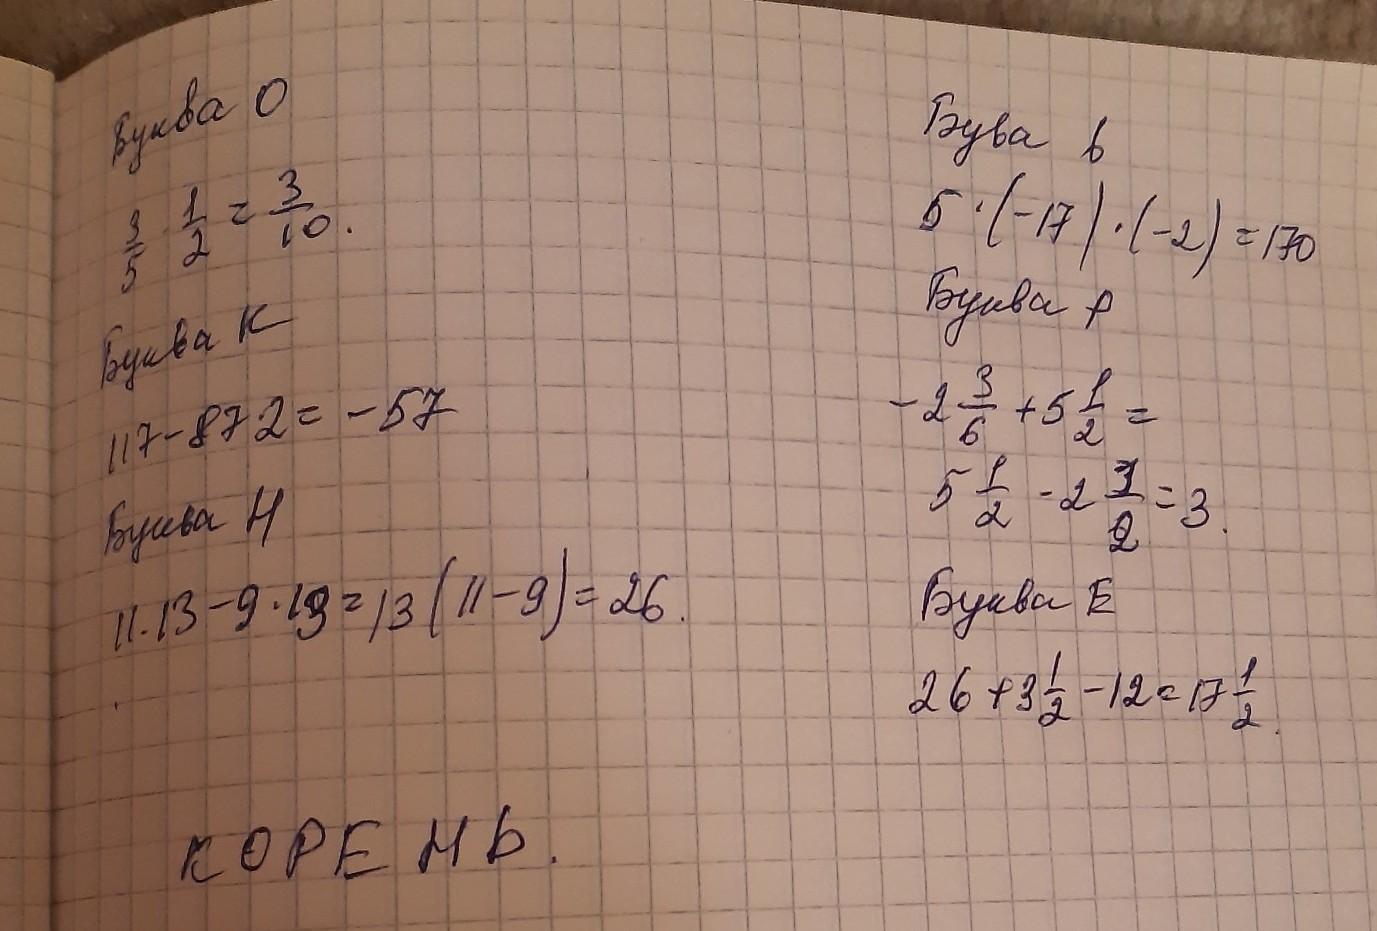 Буква О
3/5 · 1/2 = 3/10.
Буква К
117-872 = -57
Буква Н
11·13-9·13=13(11-9)=26.
Бува ь
5·(-17)·(-2)=170
Буква р
-2 3/6 +5 1/2 =
5 1/2 -2 1/2 = 3.
Буква Е
26+3 1/2 -12=17 1/2.
КОРЕНЬ.